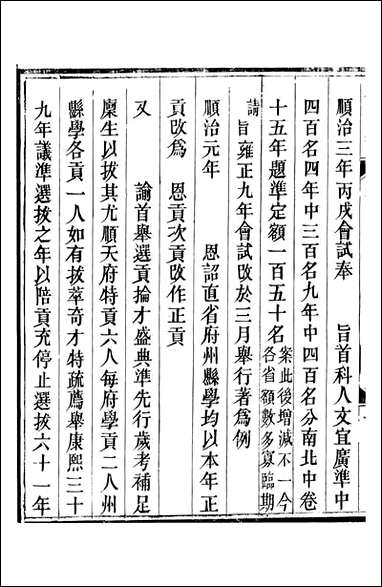 順治三年丙戌會試奉　旨首科人文宜廣準中
四百名四年中三百名九年中四百名分南北中卷
十五年題準定額一百五十名案此後增減不一今各省額數多寡臨期
請旨雍正九年會試改於三月舉行著為例
順治元年　恩詔直省府州縣學均以本年正
貢改爲　恩貢次貢改作正貢
又　諭首舉選貢掄才盛典準先行歲考補足
廩生以拔其尤順天府特貢六人每府學貢二人州
縣學各貢一人如有拔萃奇才特疏薦舉康熙三十
九年議準選拔之年以陪貢充停止選拔六十一年